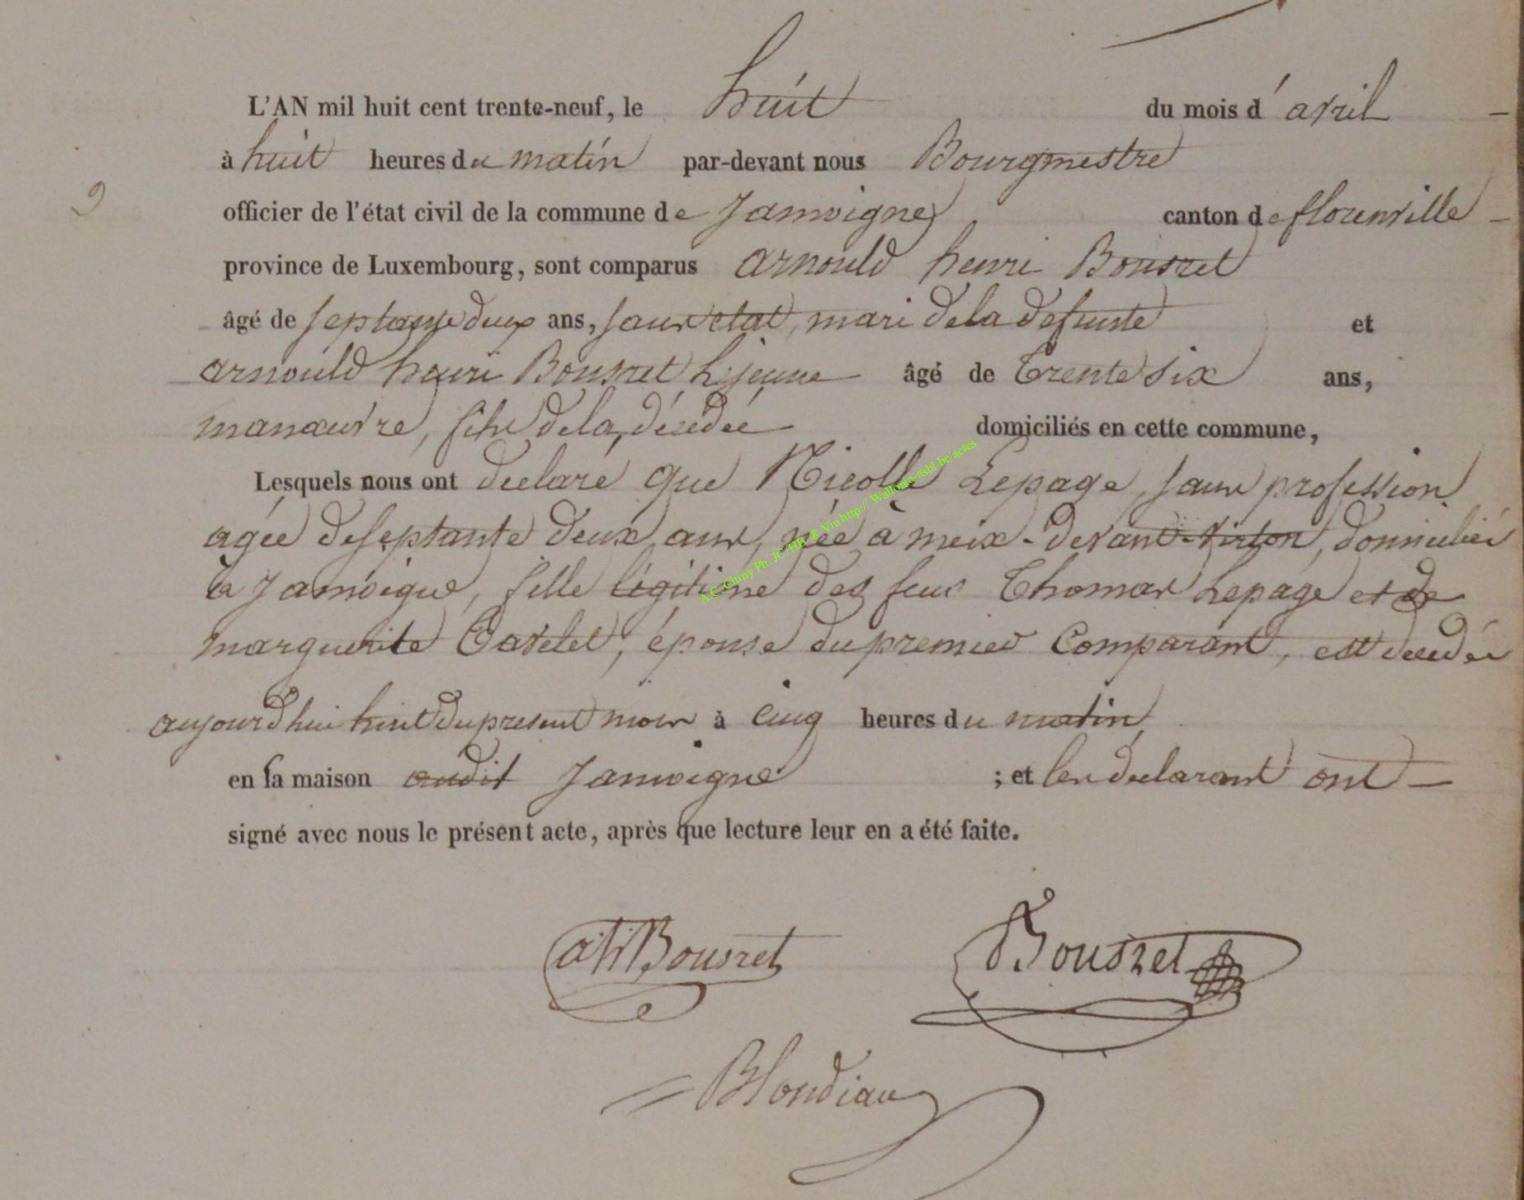 L'AN mil huit cent trente-neuf, le huit du mois d'avril
à huit heures du matin par-devant nous Bourgmestre
9
officier de l'état civil de la commune de Jamoigne canton de florenville
province de Luxembourg, sont comparus arnould henri Bousret
âgé de septante deux ans, sans état, mari de la defunte et
arnould henri Bousret le jeune âgé de trente six ans,
manœuvre, fils de la décedée domiciliés en cette commune,
Lesquels nous ont declaré que Nicolle Lepage, sans profession
agée de septante deux ans, née à meix-devant-Virton, domiciliée
à Jamoigne, fille légitime des feus Thomas Lepage et de
marguerite, épouse du premier Comparant, est décedée
aujourd'hui huit du present mois à cinq heures du matin
en sa maison audit Jamoigne ; et les declarant ont
signé avec nous le présent acte, après que lecture leur en a été faite.
ahBousret Bousret
Blondiau